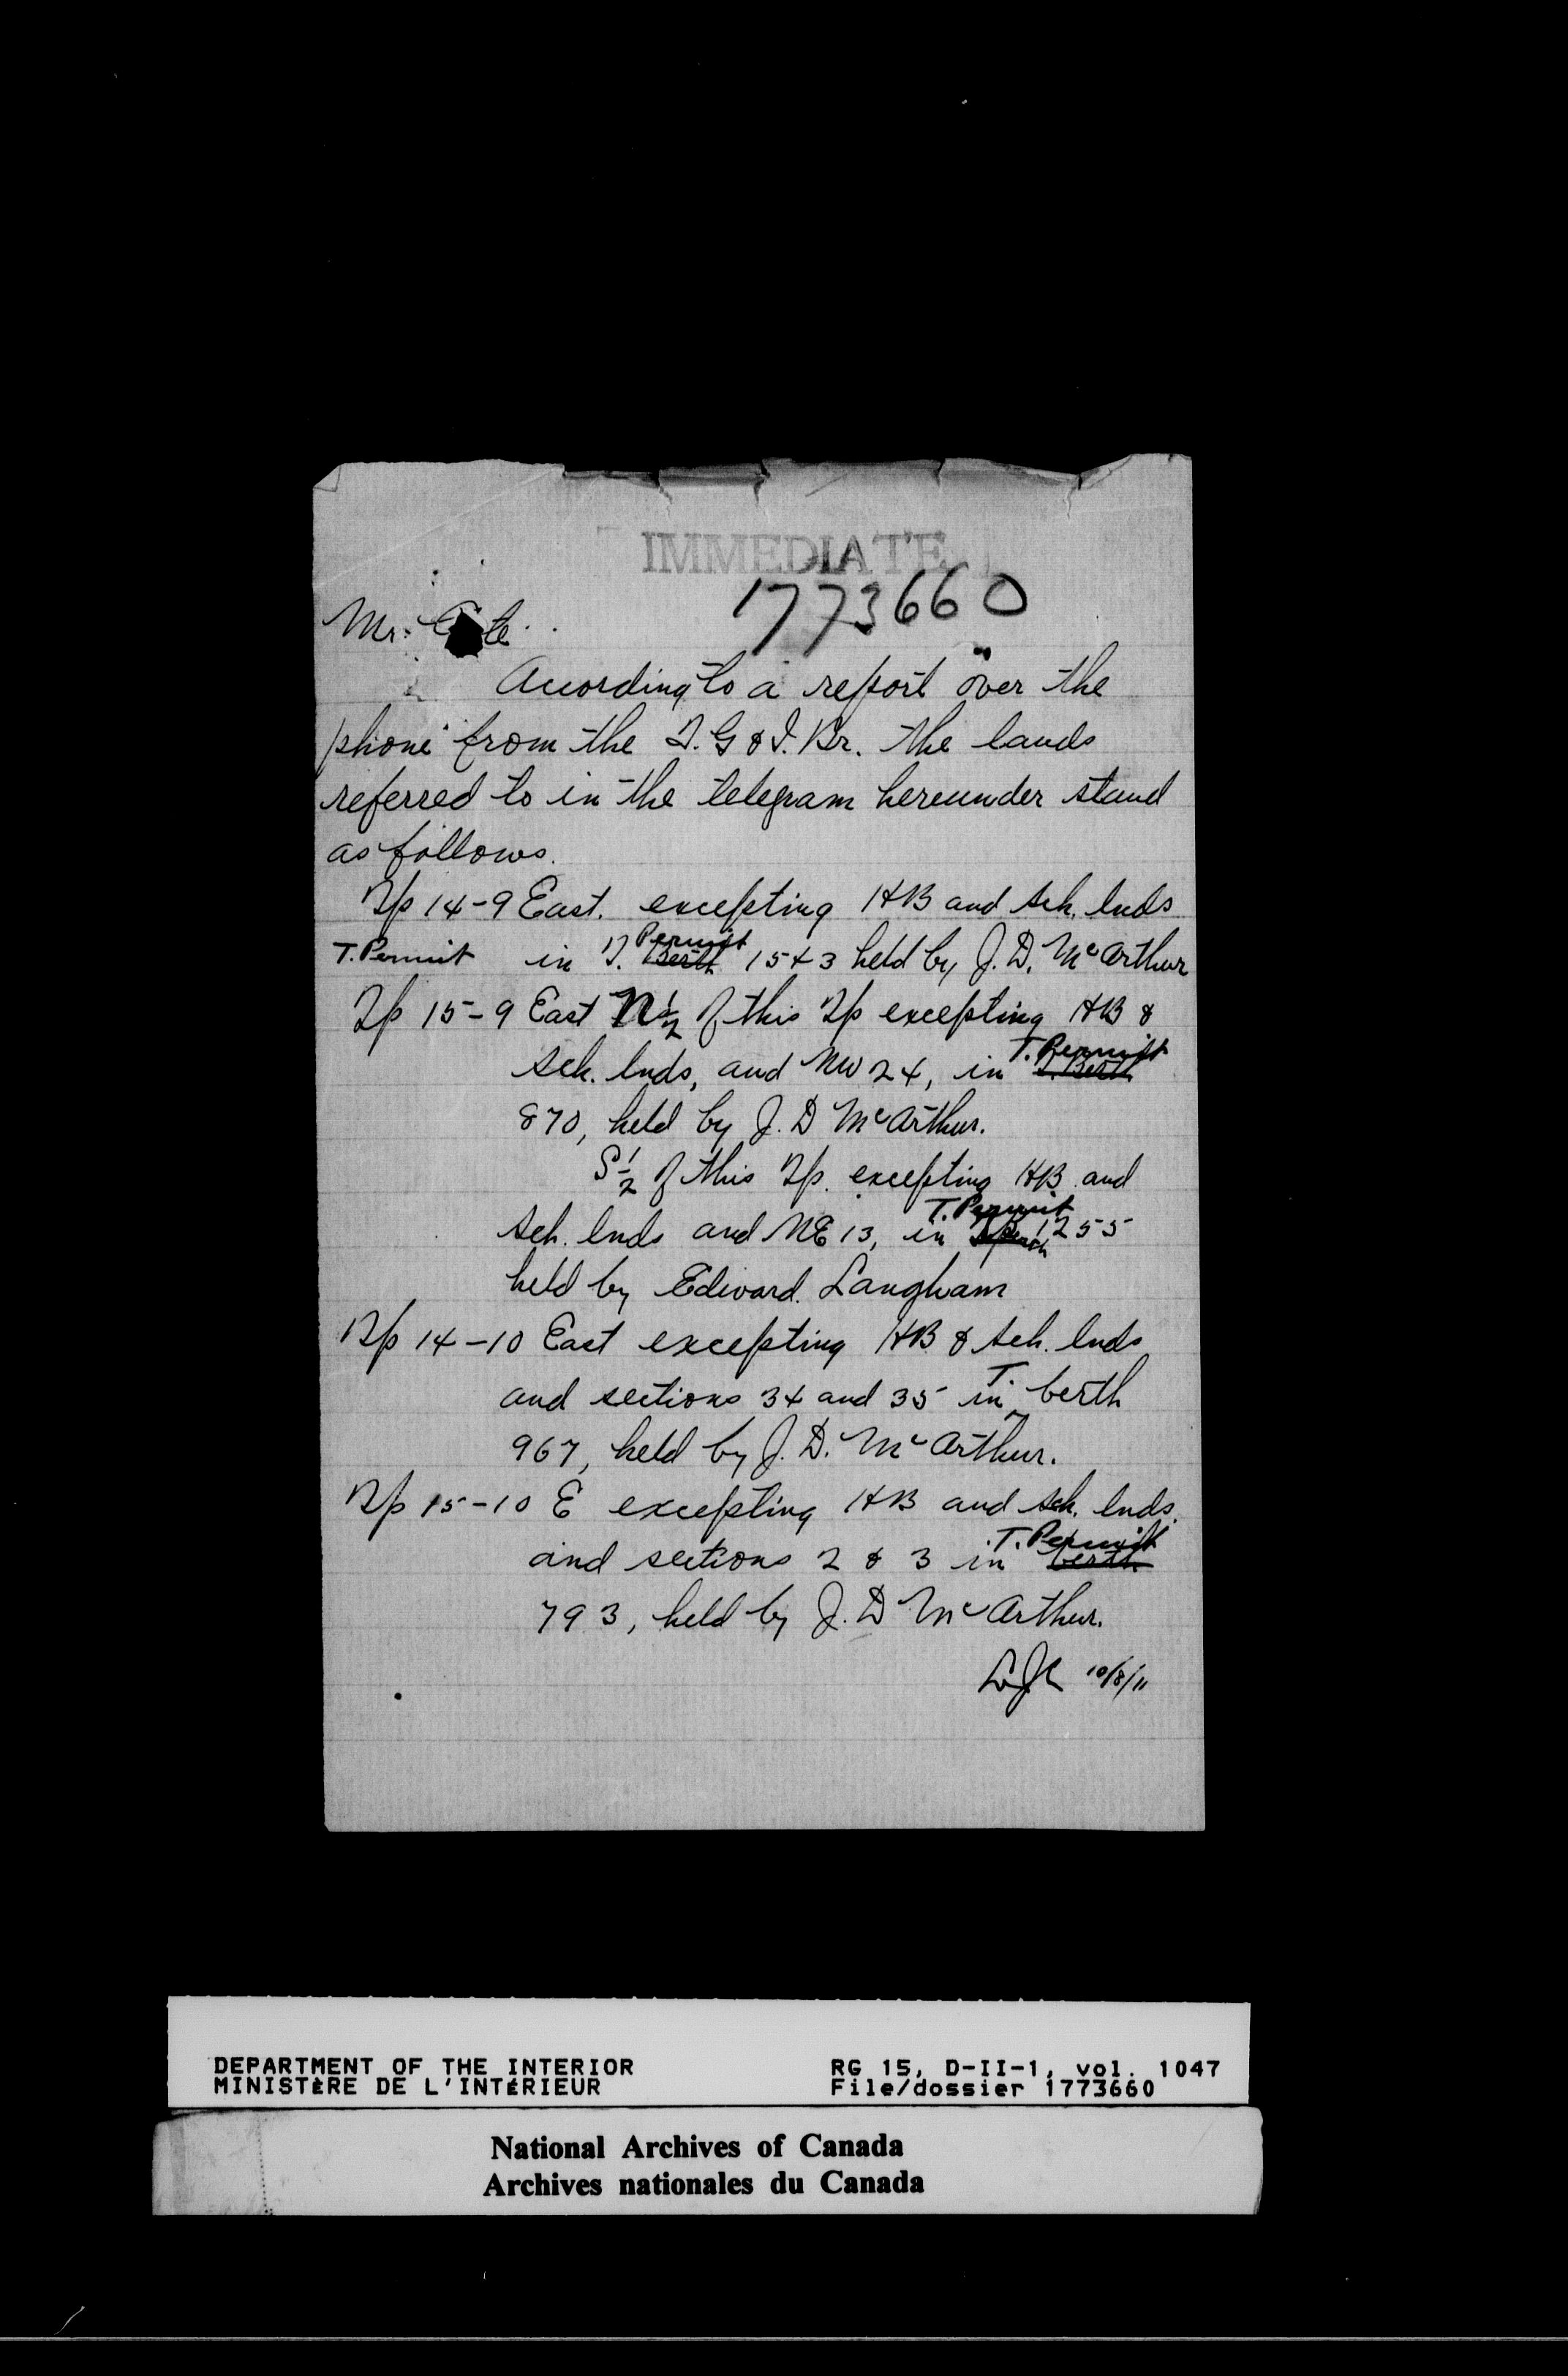 IMMEDIATE
1773660
Mr.
According to a report over the
phone from the T. G & I. Br. the lands
referred to in the telegram hereunder stand
as follows.
Tp 14-9 East. excepting HB and Sch. lnds
T. Permit in T. Permit Berth 1543 held by J. D. McArthur
Tp 15-9 East N½ of this Tp excepting HB &
Sch. lnds, and NW 24, in T. Permit T. Berth
870, held by J. D McArthur.
S½ of this Tp. excepting HB and
Sch. lnds and NE 13, in T. Permit 1255
held by Edward Langham
Tp 14-10 East excepting HB & Sch. lnds
and sections 34 and 35 in T. berth
967, held by J. D. McArthur.
Tp 15-10 E excepting HB and Sch. lnds.
and sections 2 & 3 in T. Permit berth
793, held by J. D McArthur.
10/8/11
DEPARTMENT OF THE INTERIOR
MINISTÈRE DE L'INTÉRIEUR
RG 15, D-II-1, vol. 1047
File/dossier 1773660
National Archives of Canada
Archives nationales du Canada